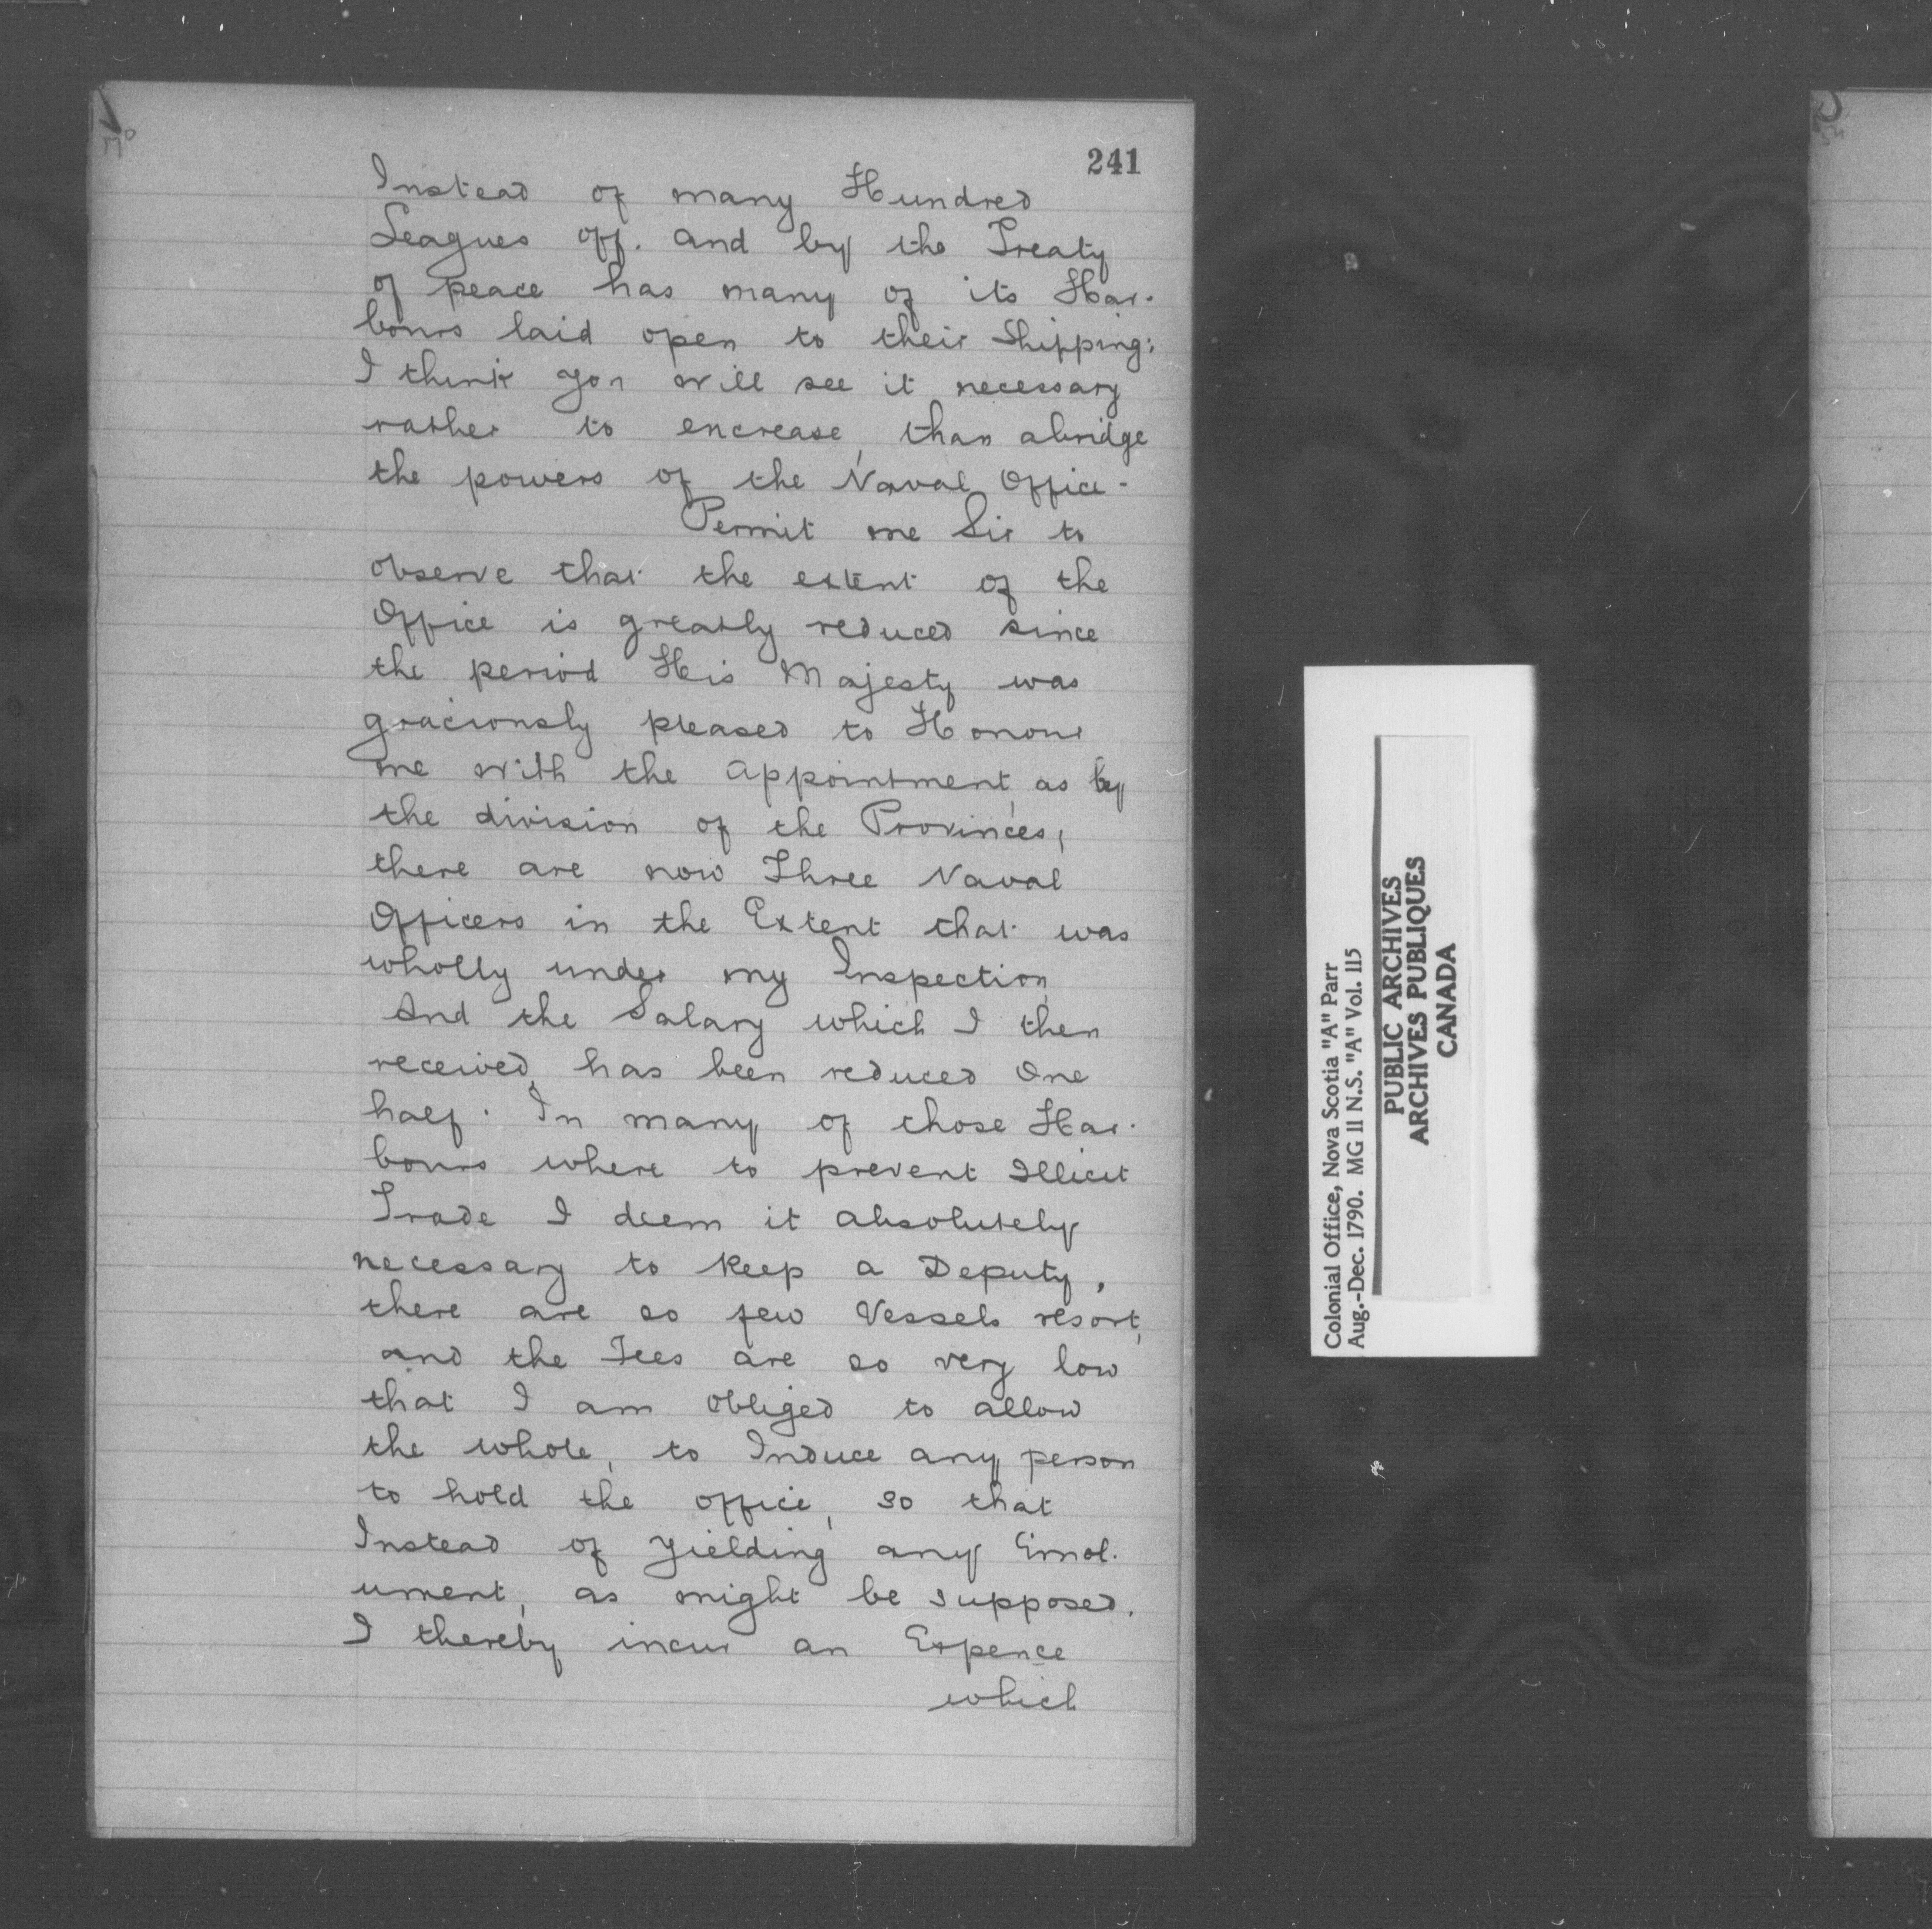 241
Instead of many Hundred
Leagues off. and by the Treaty
of peace has many of its Har-
bours laid open to their Shipping;
I think you will see it necessary
rather to encrease, than abridge
the powers of the Naval Office -
Permit me Sir to
observe that the extent of the
Office is greatly reduced since
the period His Majesty was
graciously pleased to Honour
me with the appointment, as by
the division of the Provinces,
there are now Three Naval
Officers in the Extent that was
wholly under my Inspection,
And the Salary which I then
received, has been reduced One
half. In many of those Har-
bours where to prevent Illicit
Trade I deem it absolutely
necessary to keep a Deputy,
there are so few Vessels resort,
and the Fees are so very low
that I am obliged to allow
the whole, to Induce any person
to hold the office, so that
Instead of yielding any Emol-
ument, as might be supposed.
I thereby incur an Expence
which
Colonial Office, Nova Scotia "A" Parr
Aug.-Dec. 1790. MG 11 N.S. "A" Vol. 115
PUBLIC ARCHIVES
ARCHIVES PUBLIQUES
CANADA